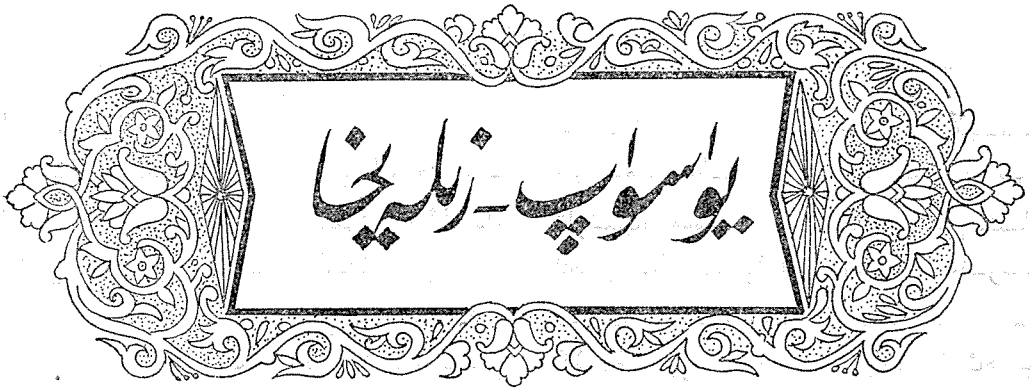 يۈسۈپ - زىلەيخا